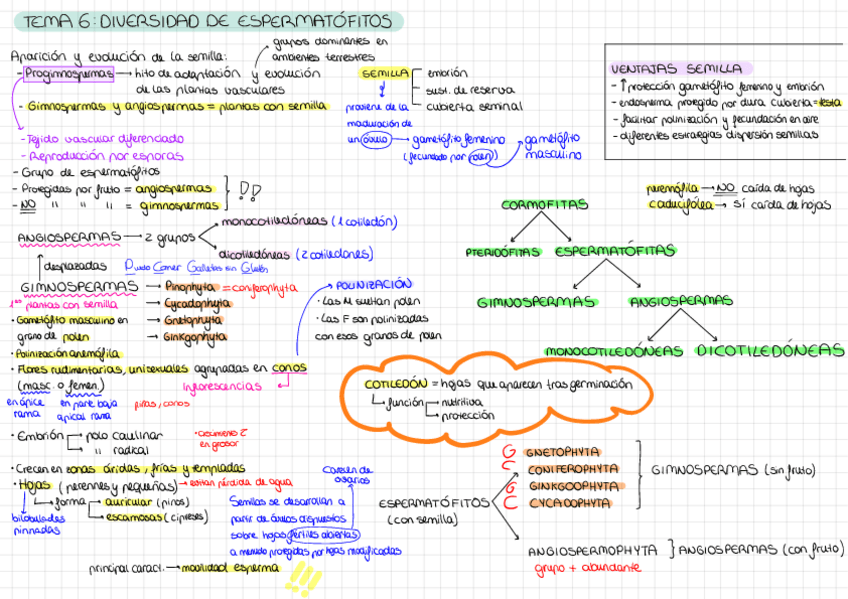 TEMA 6: DIVERSIDAD DE ESPERMATÓFITOS
Aparición y evolución de la semilla:
grupos dominantes en
ambientes terrestres
- Progimnospermas → hito de adaptación y evolución
de las plantas vasculares
- Gimnospermas y angiospermas = plantas con semilla
- Tejido vascular diferenciado
- Reproducción por esporas
- Grupo de espermatófitos
- Protegidas por fruto = angiospermas
- NO " " " = gimnospermas
SEMILLA
embrión
sust. de reserva
cubierta seminal
proviene de la
maduración de
un óvulo → gametófito femenino
(fecundado por polen)
gametófito
masculino
VENTAJAS SEMILLA
- ↑ protección gametófito femenino y embrión
- endosperma protegido por dura cubierta = testa
- facilitar polinización y fecundación en aire
- diferentes estrategias dispersión semillas
perennifolia → NO caída de hojas
caducifolea → SÍ caída de hojas
ANGIOSPERMAS → 2 grupos
monocotiledóneas (1 cotiledón)
dicotiledóneas (2 cotiledones)
desplazadas
Puedo Comer Galletas sin Gluten
GIMNOSPERMAS
1as plantas con semilla
Pinophyta = coniferophyta
Cycadophyta
Gnetophyta
Ginkgophyta
· Gametófito masculino en
grano de polen
· Polinización anemófila
· Flores rudimentarias, unisexuales agrupadas en conos
(masc. o femen.)
inflorescencias
en ápice
rama
en parte baja
apical rama
piñas, conos
→ POLINIZACIÓN
· Las M sueltan polen
· Las F son polinizadas
con esos granos de polen
CORMOFITAS
PTERIDÓFITAS ESPERMATÓFITAS
GIMNOSPERMAS ANGIOSPERMAS
MONOCOTILEDÓNEAS DICOTILEDÓNEAS
COTILEDÓN = hojas que aparecen tras germinación
función
nutritiva
protección
· Embrión
polo caulinar
" radical
· crecimiento 2º
en grosor
· Crecen en zonas áridas, frías y templadas
· Hojas (perennes y pequeñas) → evitan pérdida de agua
forma
auricular (pinos)
escamosas (cipreses)
bilobulades
pinnadas
Carecen de
ovarios
Semillas se desarrollan a
partir de óvulos dispuestos
sobre hojas fértiles abiertas
a menudo protegidas por hojas modificadas
principal caract. → movilidad esperma
ESPERMATÓFITOS
(con semilla)
G GNETOPHYTA
C CONIFEROPHYTA
G GINKGOOPHYTA
C CYCADOPHYTA
GIMNOSPERMAS (sin fruto)
ANGIOSPERMOPHYTA } ANGIOSPERMAS (con fruto)
grupo + abundante